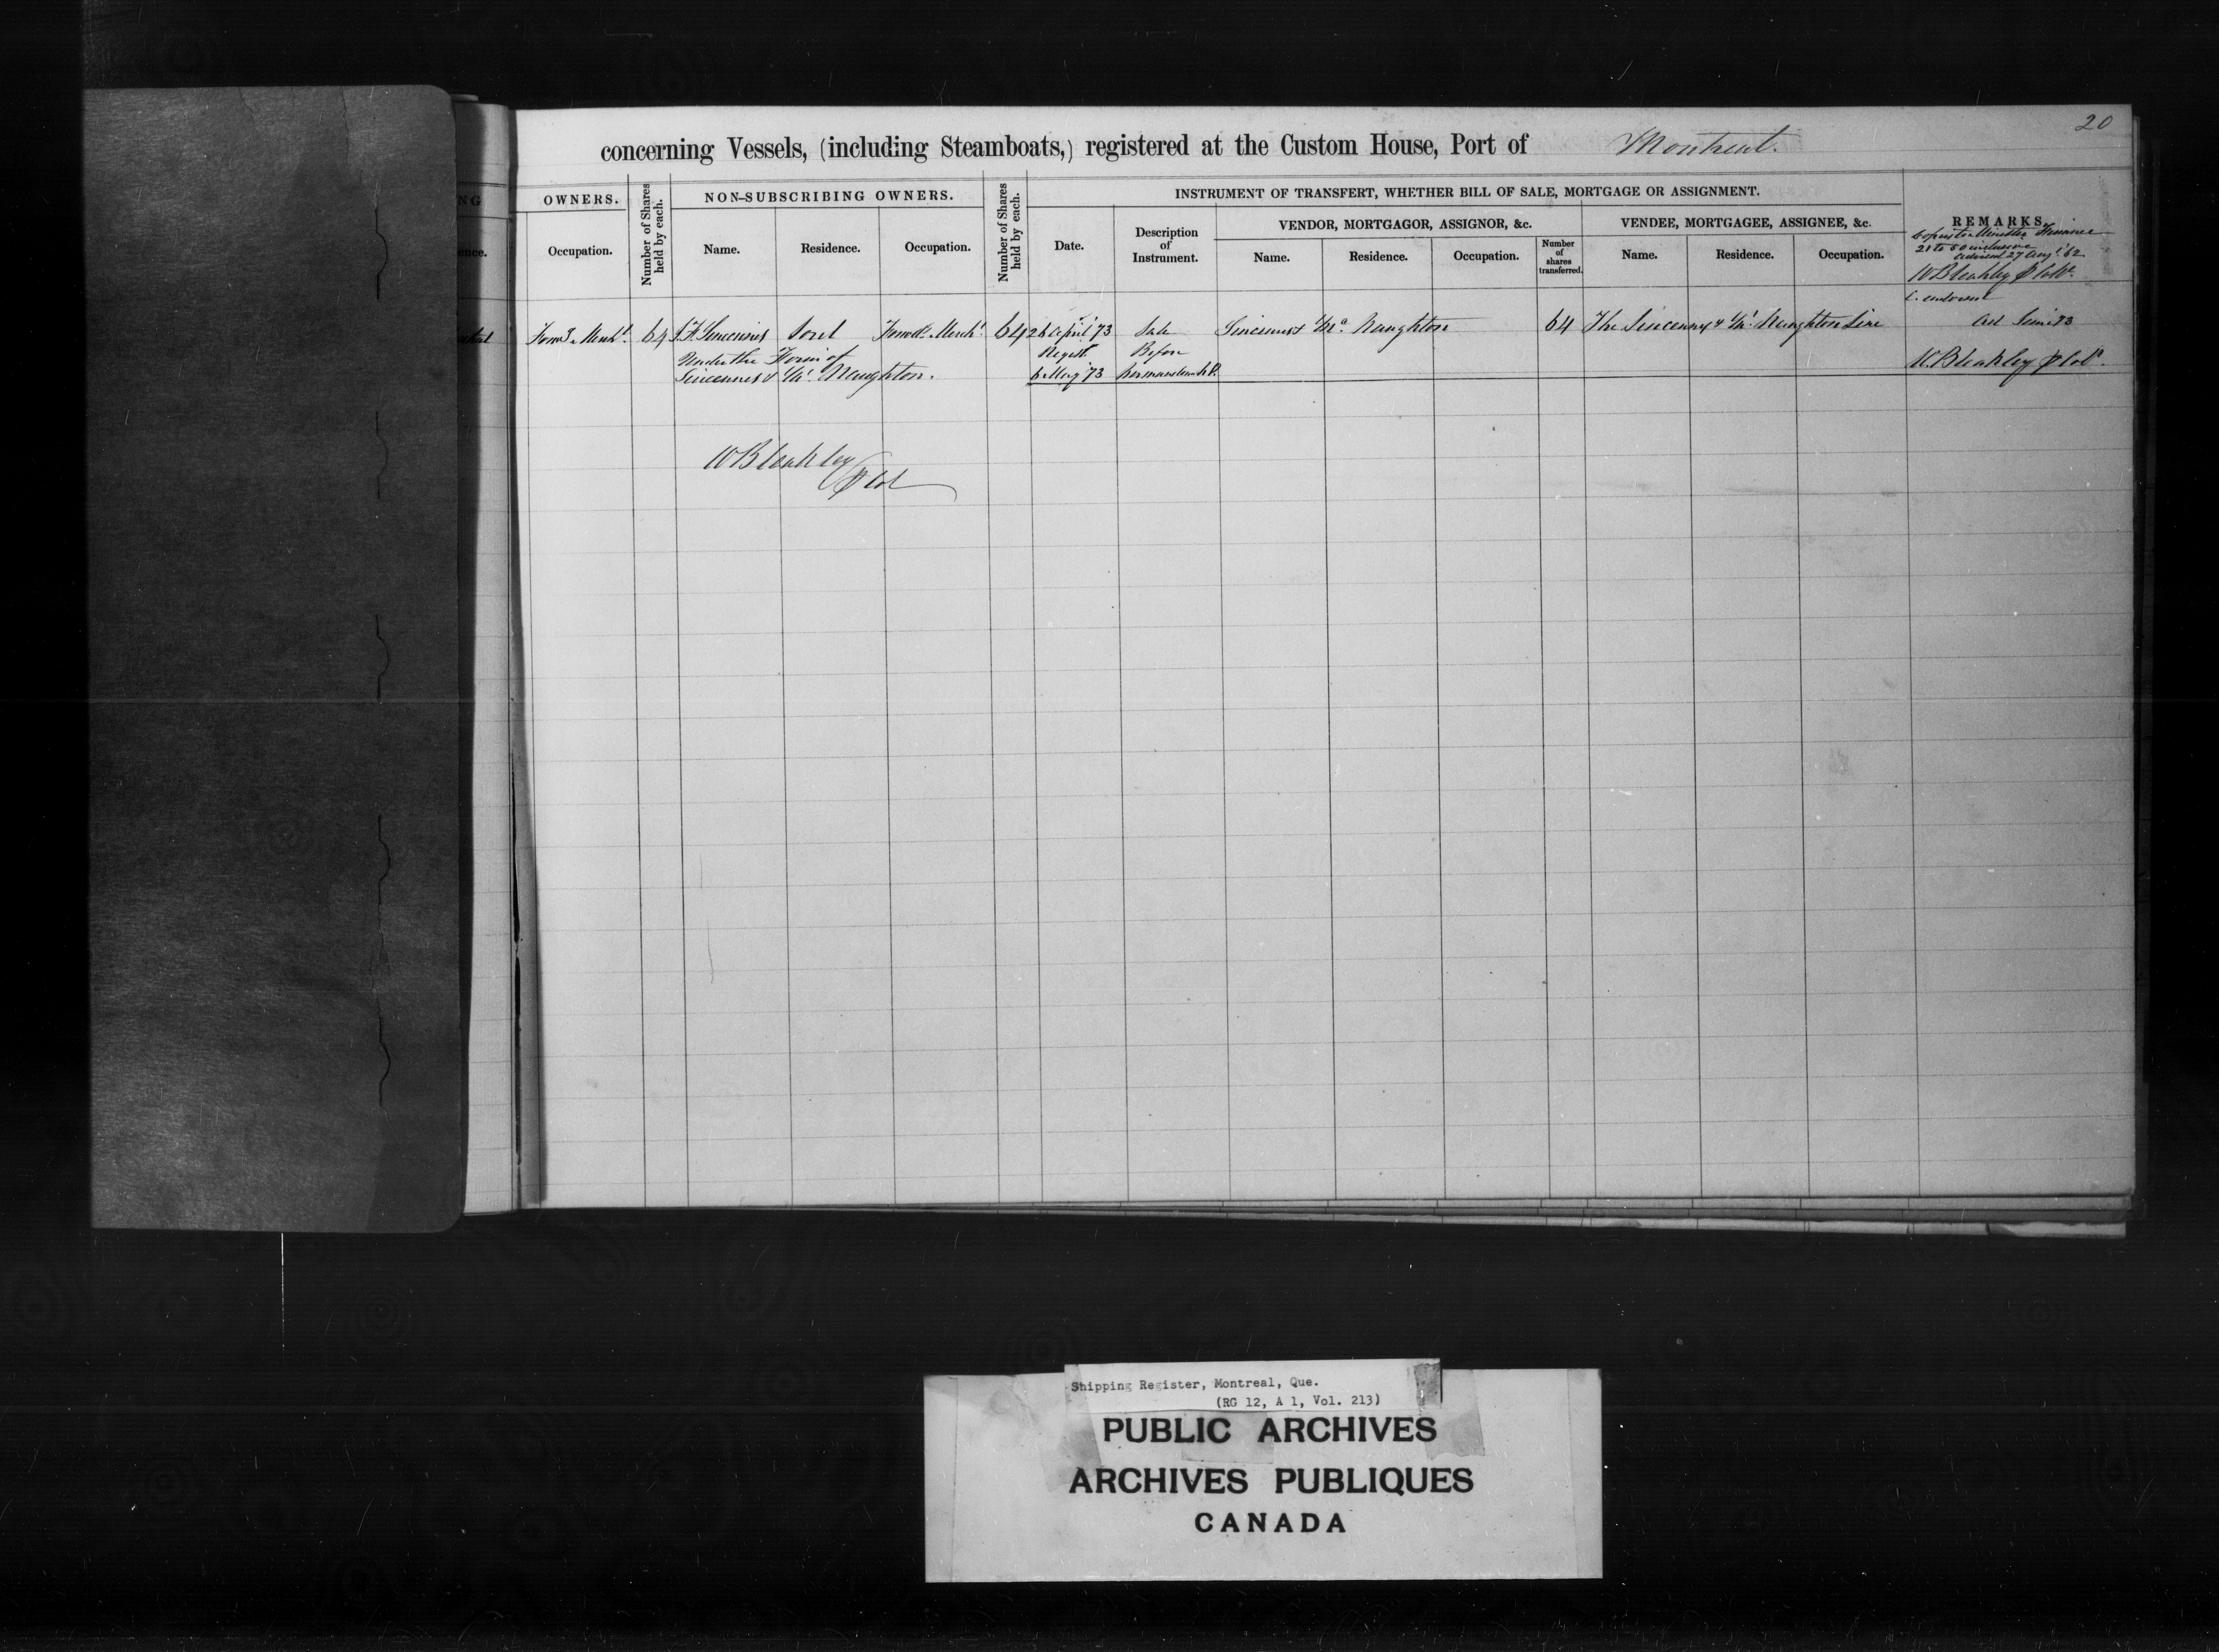 20
concerning Vessels, (including Steamboats,) registered at the Custom House, Port of Montreal.
NG OWNERS. Number of Shares held by each. NON-SUBSCRIBING OWNERS. Number of Shares held by each. INSTRUMENT OF TRANSFERT, WHETHER BILL OF SALE, MORTGAGE OR ASSIGNMENT. REMARKS.
VENDOR, MORTGAGOR, ASSIGNOR, &c. VENDEE, MORTGAGEE, ASSIGNEE, &c.
ence. Occupation. Name. Residence. Occupation. Date. Description of Instrument. Name. Residence. Occupation. Number of shares transferred. Name. Residence. Occupation.
Copies to Minister Finance
21 to 50 inclusive
27 Augt '62
W Bleakley
Forwd. Mercht. 64 J. F. Sincennes Sorel Forwd. Mercht. 64 26 April '73 Sale Sincennes & McNaughton 64 The Sincennes & McNaughton Line
June 73
Under the Firm of Regist. Before
Sincennes & McNaughton. 6 May '73
W. Bleakley
W Bleakley
Shipping Register, Montreal, Que.
(RG 12, A 1, Vol. 213)
PUBLIC ARCHIVES
ARCHIVES PUBLIQUES
CANADA